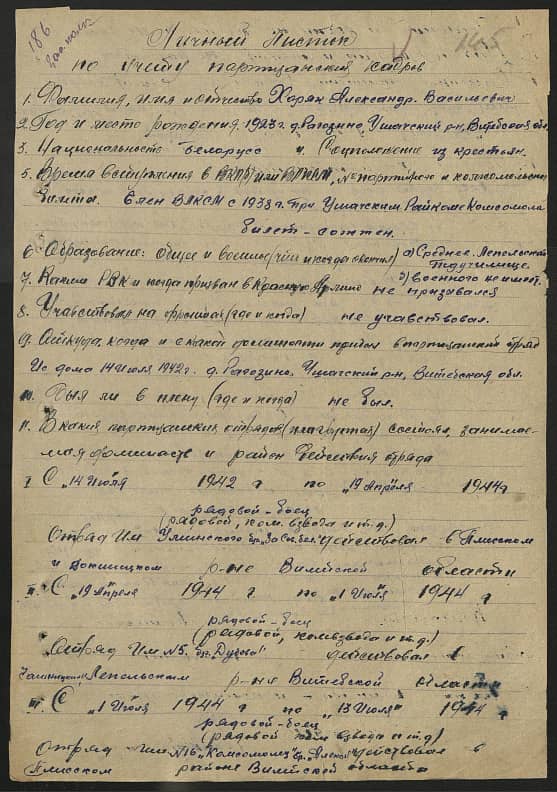 186
Личный Листок
по учёту партизанских кадров
1. Фамилия, имя и отчество Харяк Александр. Васильевич
2. Год и место рождения 1923 г. д. Рагозино, Ушачский р-н, Витебская обл.
3. Национальность Белорусс 4. Соцположение из крестьян.
5. Время вступления в ВКП(б) или ВЛКСМ, № партийного и комсомольско
билета. Член ВЛКСМ с 1938 г. при Ушачским Райкоме Комсомола
билет - сожжен.
6. Образование: общее и военное (что и когда окончил) а) Среднее. Лепельское
Педучилище.
б) военного не имеет.
7. Каким РВК и когда призван в Красную Армию не призывался
8. Участвовал на фронтах (где и когда) не учавствовал.
9. Откуда, когда и с какой должности прибыл в партизанский отряд
Из дома 14 Июля 1942 г. д. Рагозино, Ушачский р-н, Витебская обл.
10. Был ли в плену (где и когда) не был.
11. В каких партизанских отрядах (плагерная) состоял, занимае-
мая должность и район действия отряда
I С "14 Июля 1942 г по "19 Апреля 1944 г
рядовой-боец
(рядовой, ком. взвода и т.д.)
Отряд Им бр. "За Сов. Бел." действовал в Плисском
и Докшицком р-не Вилейской области
II. С "19 Апреля 1944 г по "1 Июля" 1944 г
рядовой-боец
(рядовой, ком взвода и т.д.)
Отряд Им №5. бр. действовал в
Лепельском р-не Витебской области
III. С "1 Июля 1944 г по "13 Июля" 1944 г
рядовой-боец
(рядовой ком взвода и т.д.)
Отряд им №16 "Комсомолец" бр. действовал в
Плисском районе Вилейской области